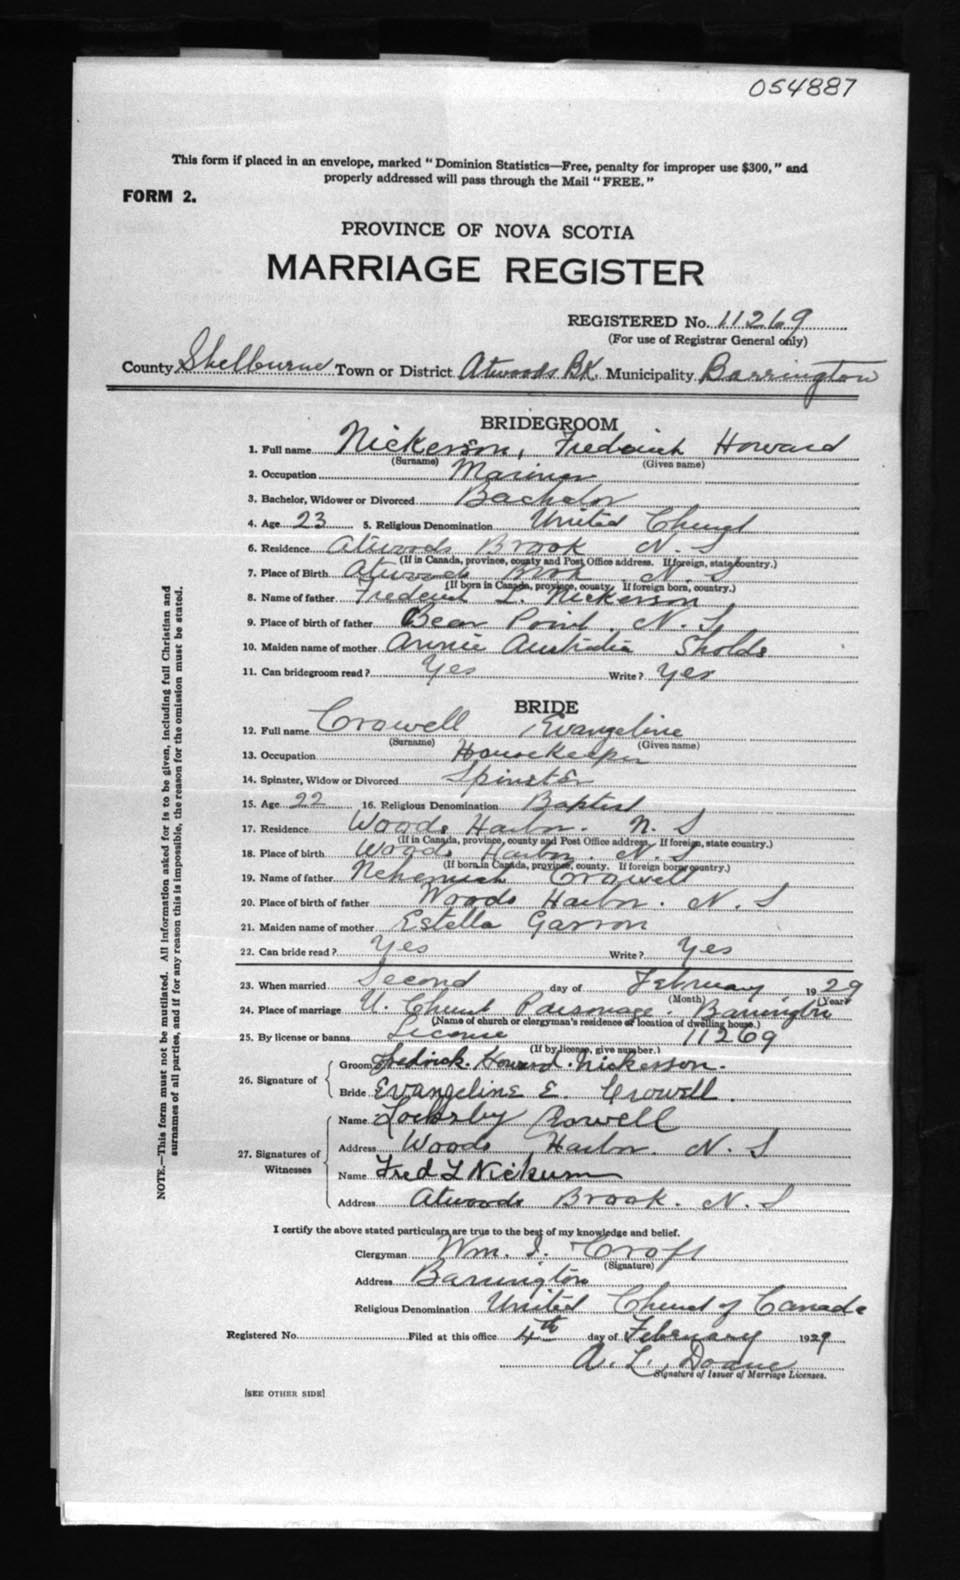 054887
This form if placed in an envelope, marked "Dominion Statistics—Free, penalty for improper use $300," and
properly addressed will pass through the Mail "FREE."
FORM 2.
PROVINCE OF NOVA SCOTIA
MARRIAGE REGISTER
REGISTERED No. 11269
(For use of Registrar General only)
County Shelburne Town or District Atwoods BK. Municipality Barrington
BRIDEGROOM
1. Full name Nickerson, Frederick Howard
(Surname) (Given name)
2. Occupation Mariner
3. Bachelor, Widower or Divorced Bachelor
4. Age 23 5. Religious Denomination United Church
6. Residence Atwoods Brook N. S
(If in Canada, province, county and Post Office address. If foreign, state country.)
7. Place of Birth Atwoods Brook N. S
(If born in Canada, province, county. If foreign born, country.)
8. Name of father Frederick L. Nickerson
9. Place of birth of father Bear Point. N. S
10. Maiden name of mother Annie Australia Sholds
11. Can bridegroom read? Yes Write? Yes
BRIDE
12. Full name Crowell Evangeline
(Surname) (Given name)
13. Occupation Housekeeper
14. Spinster, Widow or Divorced Spinster
15. Age 22 16. Religious Denomination Baptist
17. Residence Woods Harbor. N. S
(If in Canada, province, county and Post Office address. If foreign, state country.)
18. Place of birth Woods Harbor. N. S
(If born in Canada, province, county. If foreign born, country.)
19. Name of father Nehemiah Crowell
20. Place of birth of father Woods Harbor. N. S
21. Maiden name of mother Estella Garron
22. Can bride read? Yes Write? Yes
23. When married Second day of February, 1929
(Month) (Year)
24. Place of marriage U. Church Parsonage. Barrington
(Name of church or clergyman's residence or location of dwelling house.)
25. By license or banns License 11269
(If by license, give number.)
26. Signature of Groom Fredrick. Howard. Nickerson.
Bride Evangeline E. Crowell.
27. Signatures of Witnesses Name Crowell
Address Woods Harbor. N. S
Name Fred L Nickerson
Address Atwoods Brook. N. S
I certify the above stated particulars are true to the best of my knowledge and belief.
Clergyman Wm. I. Croft
(Signature)
Address Barrington
Religious Denomination United Church of Canada
Registered No. Filed at this office 4th day of February 1929
A. L. Doane
Signature of Issuer of Marriage Licenses.
[SEE OTHER SIDE]
NOTE.—This form must not be mutilated. All information asked for is to be given, including full Christian and
surnames of all parties, and if for any reason this is impossible, the reason for the omission must be stated.